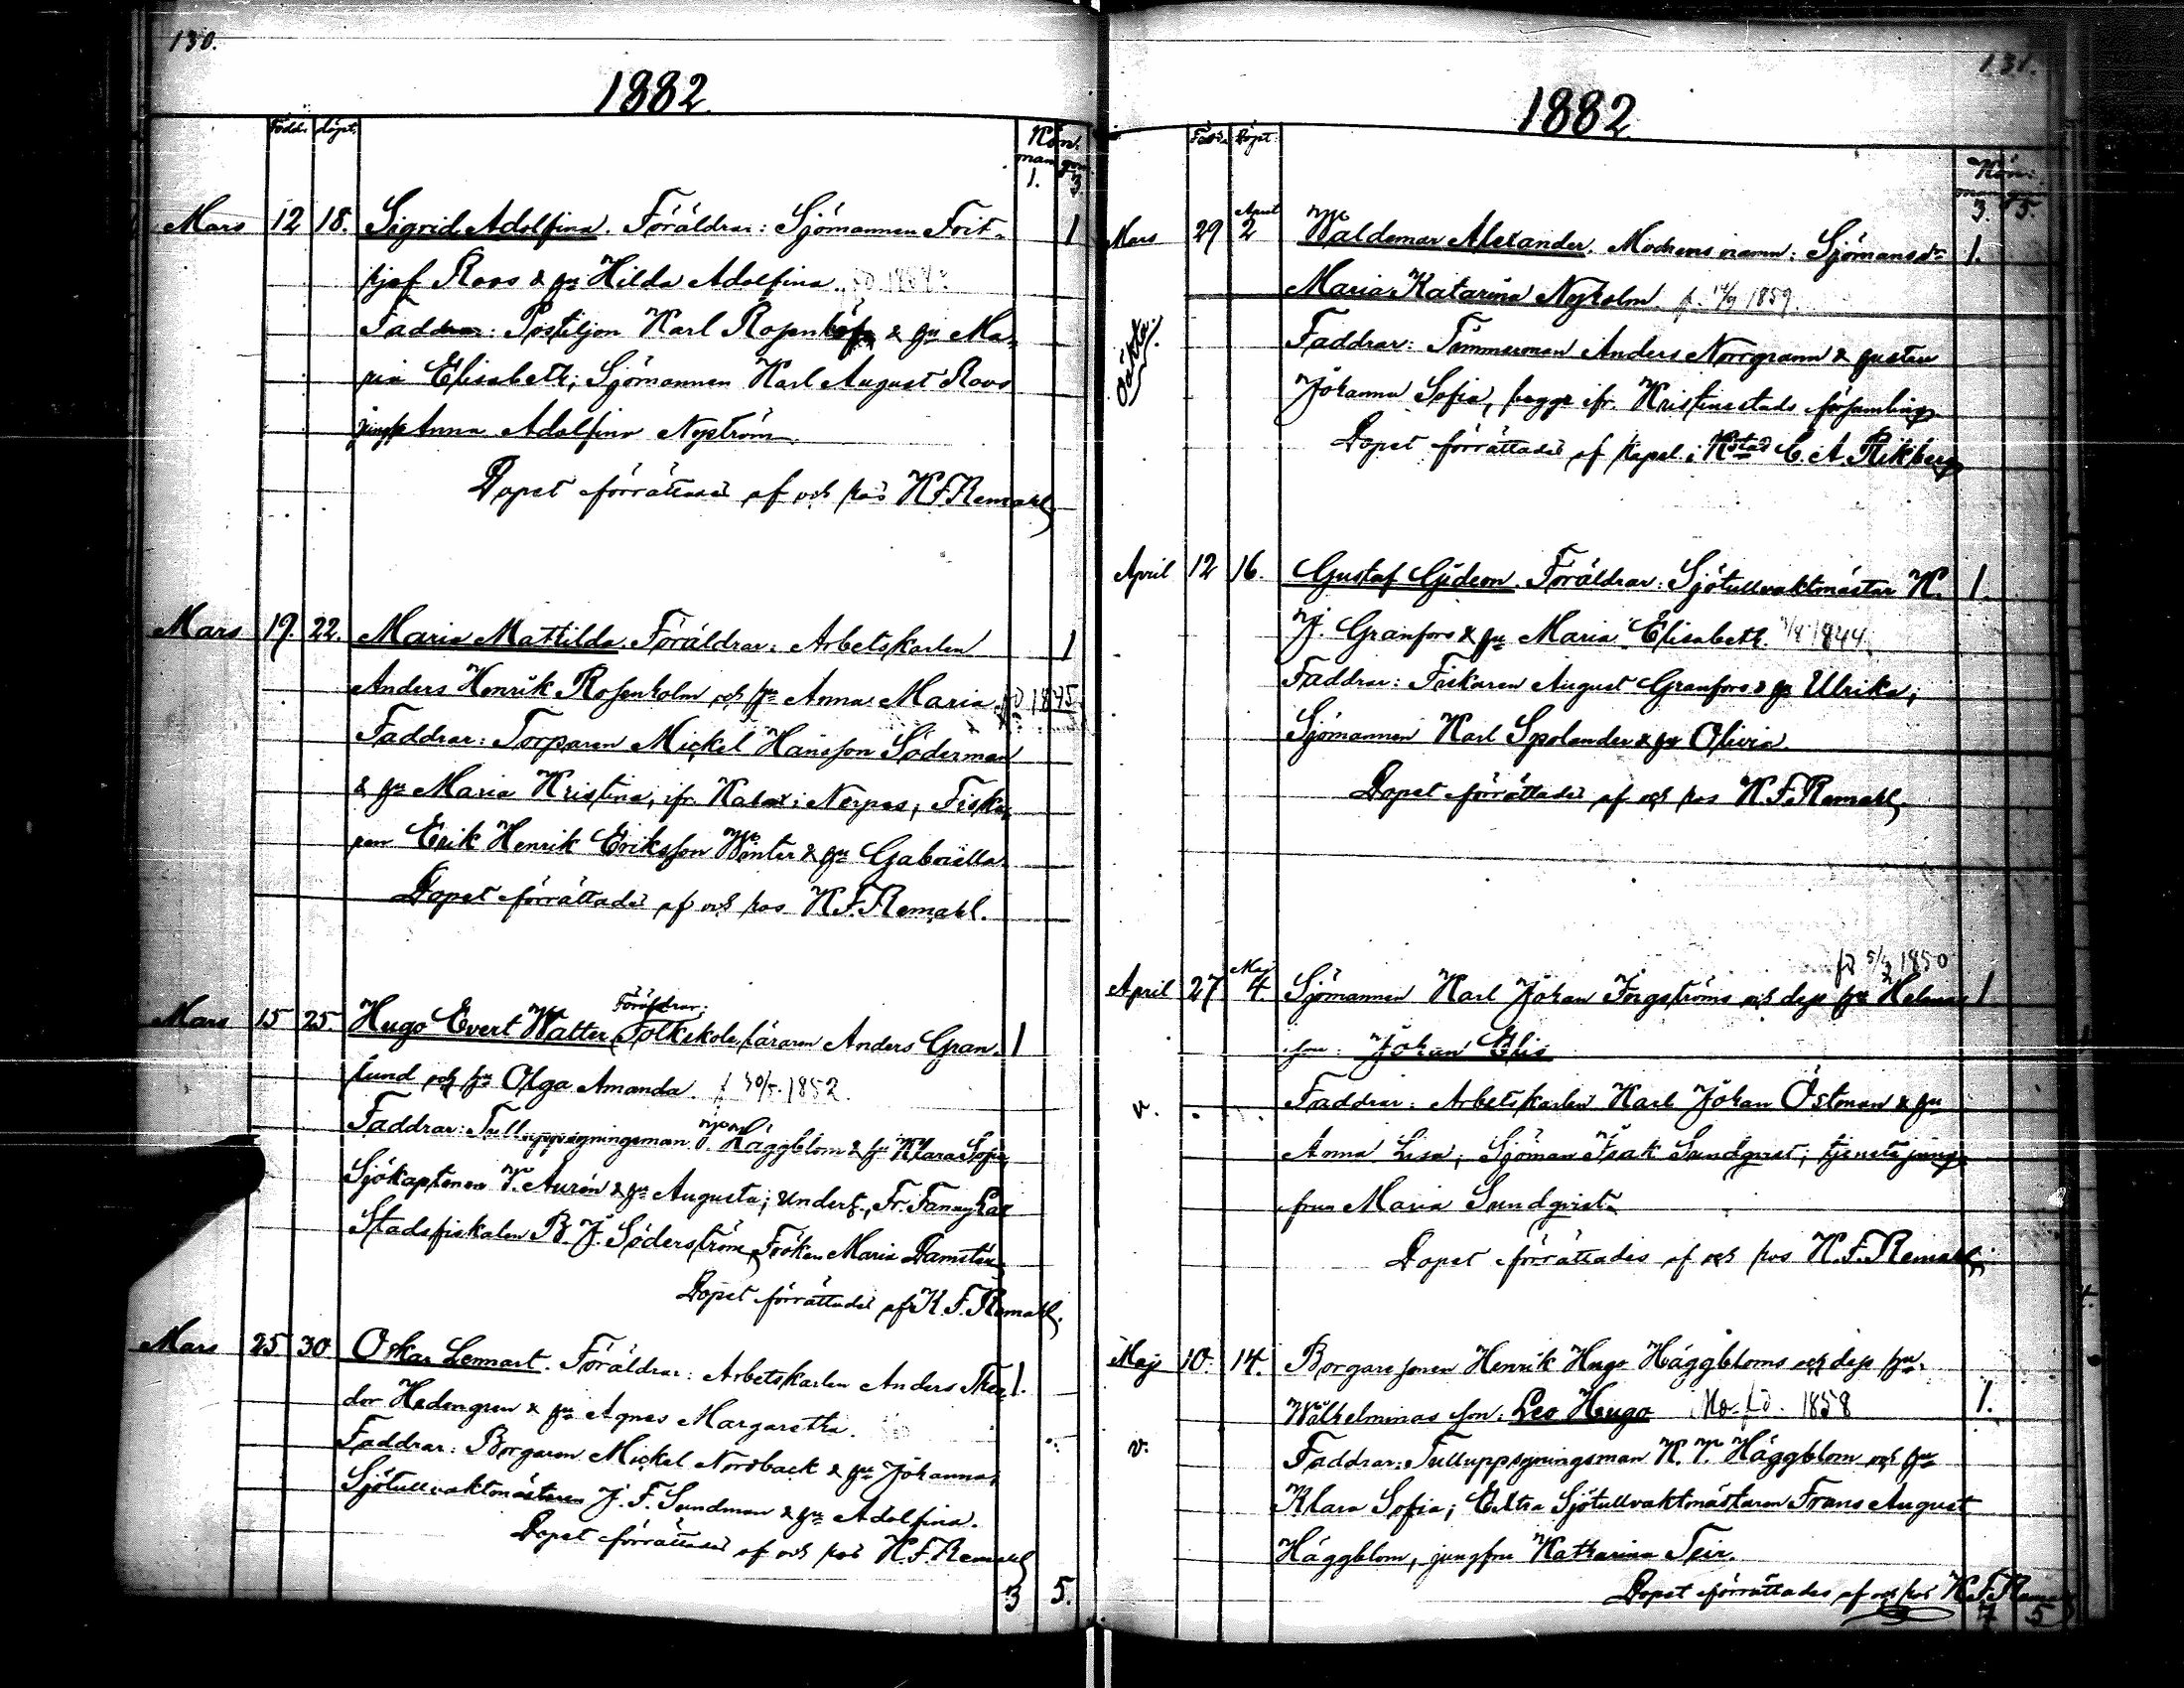 130.
1882.
Född. döpt.
Kön.
man qvin.
1. 3.
Mars 12 18. Sigrid Adolfina. Föräldrar: Sjömannen Frit- 1
hjof Roos & hu Hilda Adolfina.
Faddrar: Postiljon Karl & hu Ma-
ria Elisabeth; Sjömannen Karl August Roos
jungfr Anna Adolfina Nyström.
Dopet förrättades af och hos K.F. Remahl
Mars 19. 22. Maria Mattilda. Föräldrar: Arbetskarlen 1
Anders Henrik Rosenholm och hu Anna Maria. fd 1845
Faddrar: Torparen Mickel Hansson Söderman
& hu Maria Kristina, ifr. Kalax i Nerpes, Fiska-
ren Erik Henrik Eriksson Winter & hu Gabriella.
Dopet förrättades af och hos K.F. Remahl.
Föräldrar:
Mars 15 25 Hugo Evert Walter Folkskoleläraren Anders Gran- 1
lund och hu Olga Amanda. f 30/5 1852.
Faddrar: Tulluppsyningsman Häggblom & hu Klara Sofia,
Sjökaptenen V. Aurén & hu Augusta; Undert., Fr. Fanny
Stadsfiskalen B. J. Söderström, Fröken Maria Damstén
Dopet förrättades af K. F. Remahl.
Mars 25 30 Oskar Lennart. Föräldrar: Arbetskarlen Anders Theo- 1.
dor Hedengren & hu Agnes Margaretha.
Faddrar: Borgaren Mickel Nordback & hu Johanna,
Sjötullvaktmästaren J. F. Sundman & hu Adolfina.
Dopet förrättades af och hos K.F. Remahl
3 5.
131.
1882.
Född. Döpt.
Kön.
man qvin.
3. 5.
April
Mars 29 2 Waldemar Alexander. Modrens namn: Sjömansdr 1.
Maria Katarina Nyholm. f. 1859.
oäkta.
Faddrar: Timmerman Anders Norrgrann & hustru
Johanna Sofia, begge ifr. Kristinestads församling
Dopet förrättades af Kapel. i Kstad C. A. Rikberg
April 12 16. Gustaf Gideon. Föräldrar: Sjötullvaktmästar K. 1.
J. Granfors & hu Maria Elisabeth. 1844.
Faddrar: Fiskaren August Granfors & hu Ulrika;
Sjömannen Karl Spolander & hu Olivia.
Dopet förrättades af och hos K.F. Remahl.
fd 1850
Maj
April 27 4. Sjömannen Karl Johan Forgströms och dess hu Helenas 1
son: Johan Elis
v. Faddrar: Arbetskarlen Karl Johan Östman & hu
Anna Lisa; Sjöman Isak Sundqvist; tjenste jung-
frun Maria Sundqvist.
Dopet förrättades af och hos K.F. Remahl.
Maj 10. 14. Borgaresonen Henrik Hugo Häggbloms och dess hu.
Wilhelminas son: Leo Hugo Mo. fd. 1858 1.
v. Faddrar: Tulluppsyningsman K. V. Häggblom och hu
Klara Sofia; Extra Sjötullvaktmästaren Frans August
Häggblom, jungfru Katharina Teir.
Dopet förrättades af och hos K.F. Remahl
7 5